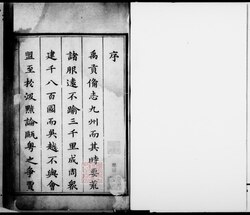 序
禹貢備志九州而其時要荒
諸服遠不踰三千里成周衆
建千八百國而吳越不與會
盟至於汲黯論甌粤之争賈